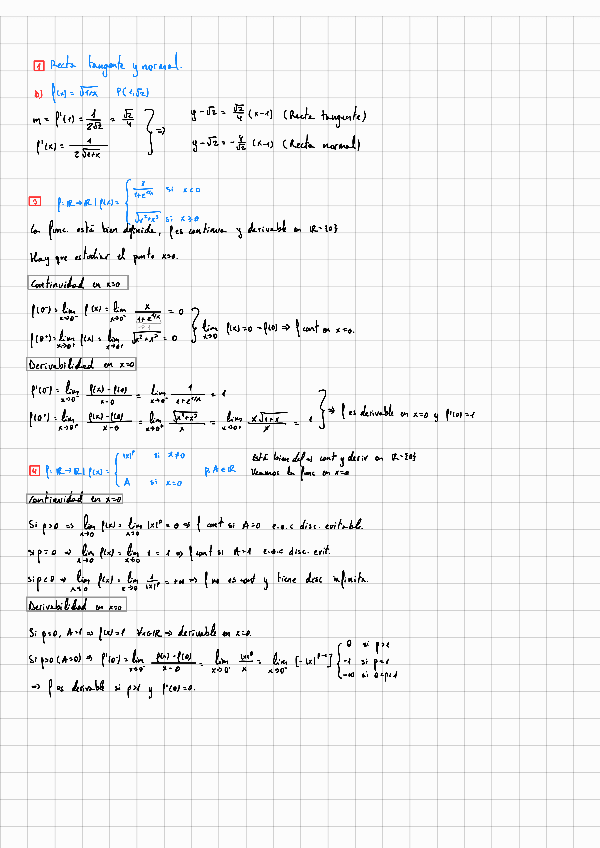 1 Recta tangente y normal.
b) f(x) = √1+x P(1,√2)
m = f'(1) = 1/2√2 = √2/4
f'(x) = 1/2√1+x
} ⇒
y-√2 = √2/4 (x-1) (Recta tangente)
y-√2 = -4/√2 (x-1) (Recta normal)
3 f: ℝ→ℝ | f(x) = { x/1+e^1/x si x<0
√x²+x³ si x≥0
La func. está bien definida, f es continua y derivable en ℝ-{0}
Hay que estudiar el punto x=0.
Continuidad en x=0
f(0⁻) = lim x→0⁻ f(x) = lim x→0⁻ x/1+e^1/x = 0
f(0⁺) = lim x→0⁺ f(x) = lim x→0⁺ √x²+x³ = 0
} lim x→0 f(x) = 0 = f(0) ⇒ f cont en x=0.
Derivabilidad en x=0
f'(0⁻) = lim x→0⁻ f(x)-f(0)/x-0 = lim x→0⁻ 1/1+e^1/x = 1
f'(0⁺) = lim x→0⁺ f(x)-f(0)/x-0 = lim x→0⁺ √x²+x³/x = lim x→0⁺ x√1+x/x = 1
} ⇒ f es derivable en x=0 y f'(0)=1
4 f: ℝ→ℝ | f(x) = { |x|^p si x≠0
A si x=0
p,A∈ℝ
Está bien def ⇒ cont y deriv en ℝ-{0}
Veamos la func en x=0
Continuidad en x=0
Si p>0 ⇒ lim x→0 f(x) = lim x→0 |x|^p = 0 ⇒ f cont si A=0 e.o.c disc. evitable.
si p=0 ⇒ lim x→0 f(x) = lim x→0 1 = 1 ⇒ f cont si A=1 e.o.c disc. evit.
si p<0 ⇒ lim x→0 f(x) = lim x→0 1/|x|^p = +∞ ⇒ f no es cont y tiene desc infinita.
Derivabilidad en x=0
Si p=0, A=1 ⇒ f(x)=1 ∀x∈ℝ ⇒ derivable en x=0.
Si p>0 (A=0) ⇒ f'(0⁻) = lim x→0⁻ f(x)-f(0)/x-0 = lim x→0⁻ |x|^p/x = lim x→0⁻ [-|x|^p-1] { 0 si p>1
-1 si p=1
-∞ si 0<p<1
⇒ f es derivable si p>1 y f'(0)=0.